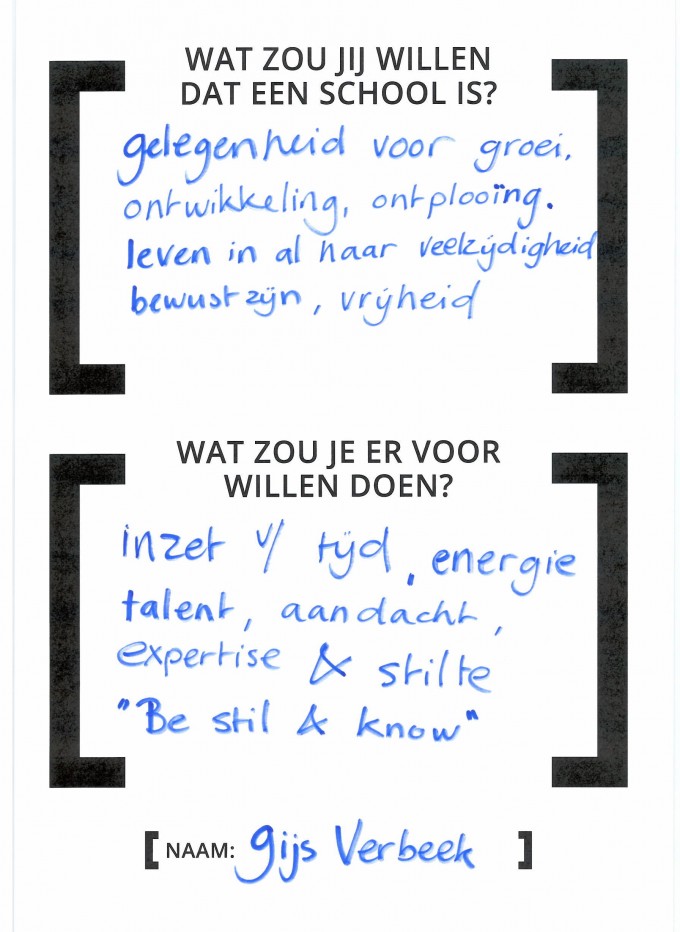 WAT ZOU JIJ WILLEN
DAT EEN SCHOOL IS?
gelegenheid voor groei,
ontwikkeling, ontplooïng.
leven in al haar veelzijdigheid
bewust zijn, vrijheid
WAT ZOU JE ER VOOR
WILLEN DOEN?
inzet v/ tijd, energie
talent, aandacht,
expertise & stilte
"Be stil & know"
[NAAM: gijs Verbeek ]